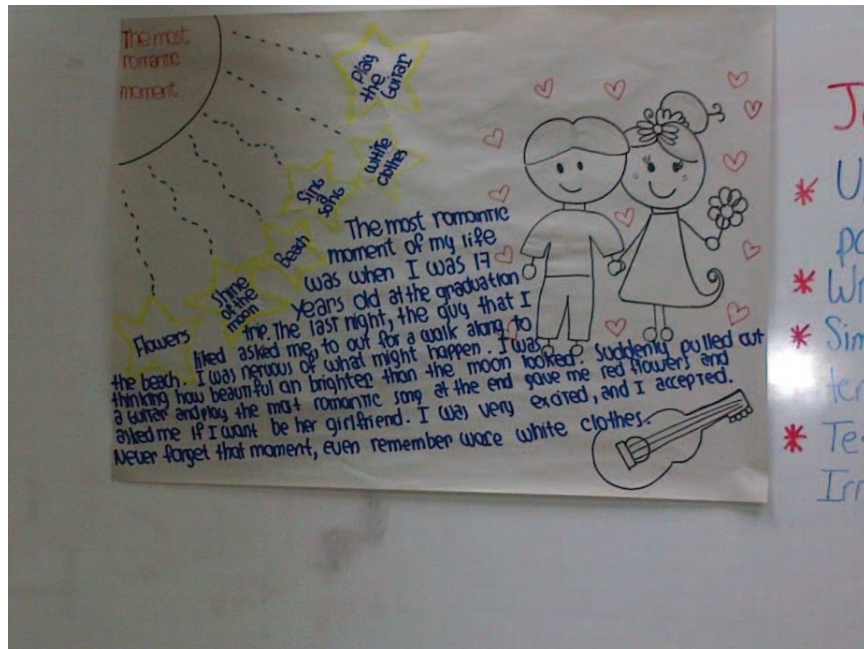 The most
romantic
moment
Play
the
Guitar
White
clothes
Sing
a
song
Beach
Shine
of the
moon
Flowers
The most romantic
moment of my life
was when I was 17
years old at the graduation
trip. The last night, the guy that I
liked asked me, to out for a walk along to
the beach. I was nervous of what might happen. I was
thinking how beautiful an brighter than the moon looked. Suddenly pulled out
a Guitar and play the most romantic song at the end gave me red flowers and
asked me if I want be her girlfriend. I was very excired, and I accepted.
Never forget that moment, even remember wore white clothes.
J
U
po
Wr
Sim
ter
Te
Irr